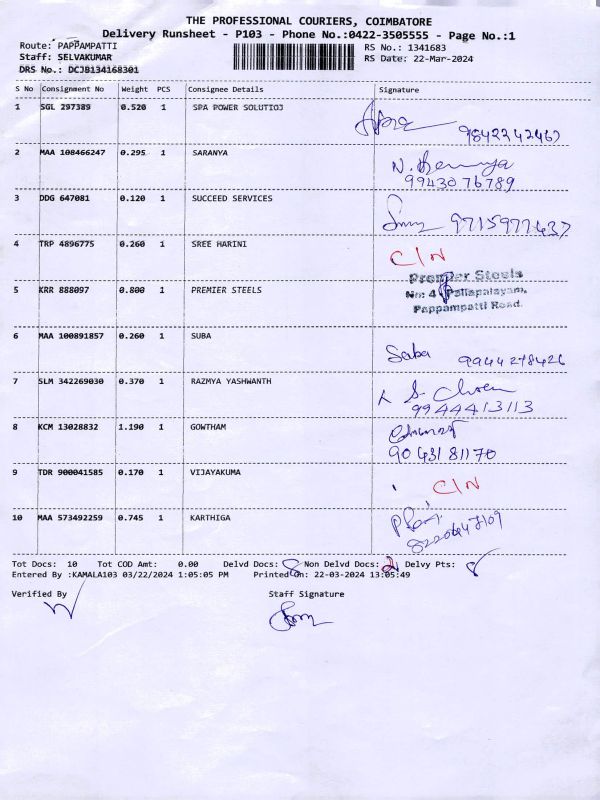 THE PROFESSIONAL COURIERS, COIMBATORE
Delivery Runsheet - P103 - Phone No.:0422-3505555 - Page No.:1
Route: PAPPAMPATTI RS No.: 1341683
Staff: SELVAKUMAR RS Date: 22-Mar-2024
DRS No.: DCJB134168301
S No Consignment No Weight PCS Consignee Details Signature
1 SGL 297389 0.520 1 SPA POWER SOLUTIOJ
9842242467
2 MAA 108466247 0.295 1 SARANYA
9943076789
3 DDG 647081 0.120 1 SUCCEED SERVICES
9715977437
4 TRP 4896775 0.260 1 SREE HARINI C/N
Premier Steels
5 KRR 888097 0.800 1 PREMIER STEELS No: 4 Pallapalayam,
Pappampatti Road.
6 MAA 100891857 0.260 1 SUBA
Suba 9944278426
7 SLM 342269030 0.370 1 RAZMYA YASHWANTH
9944413113
8 KCM 13028832 1.190 1 GOWTHAM
9043181170
9 TDR 900041585 0.170 1 VIJAYAKUMA C/N
10 MAA 573492259 0.745 1 KARTHIGA
Tot Docs: 10 Tot COD Amt: 0.00 Delvd Docs: 8 Non Delvd Docs: 2 Delvy Pts: 8
Entered By :KAMALA103 03/22/2024 1:05:05 PM Printed On: 22-03-2024 13:05:49
Verified By Staff Signature